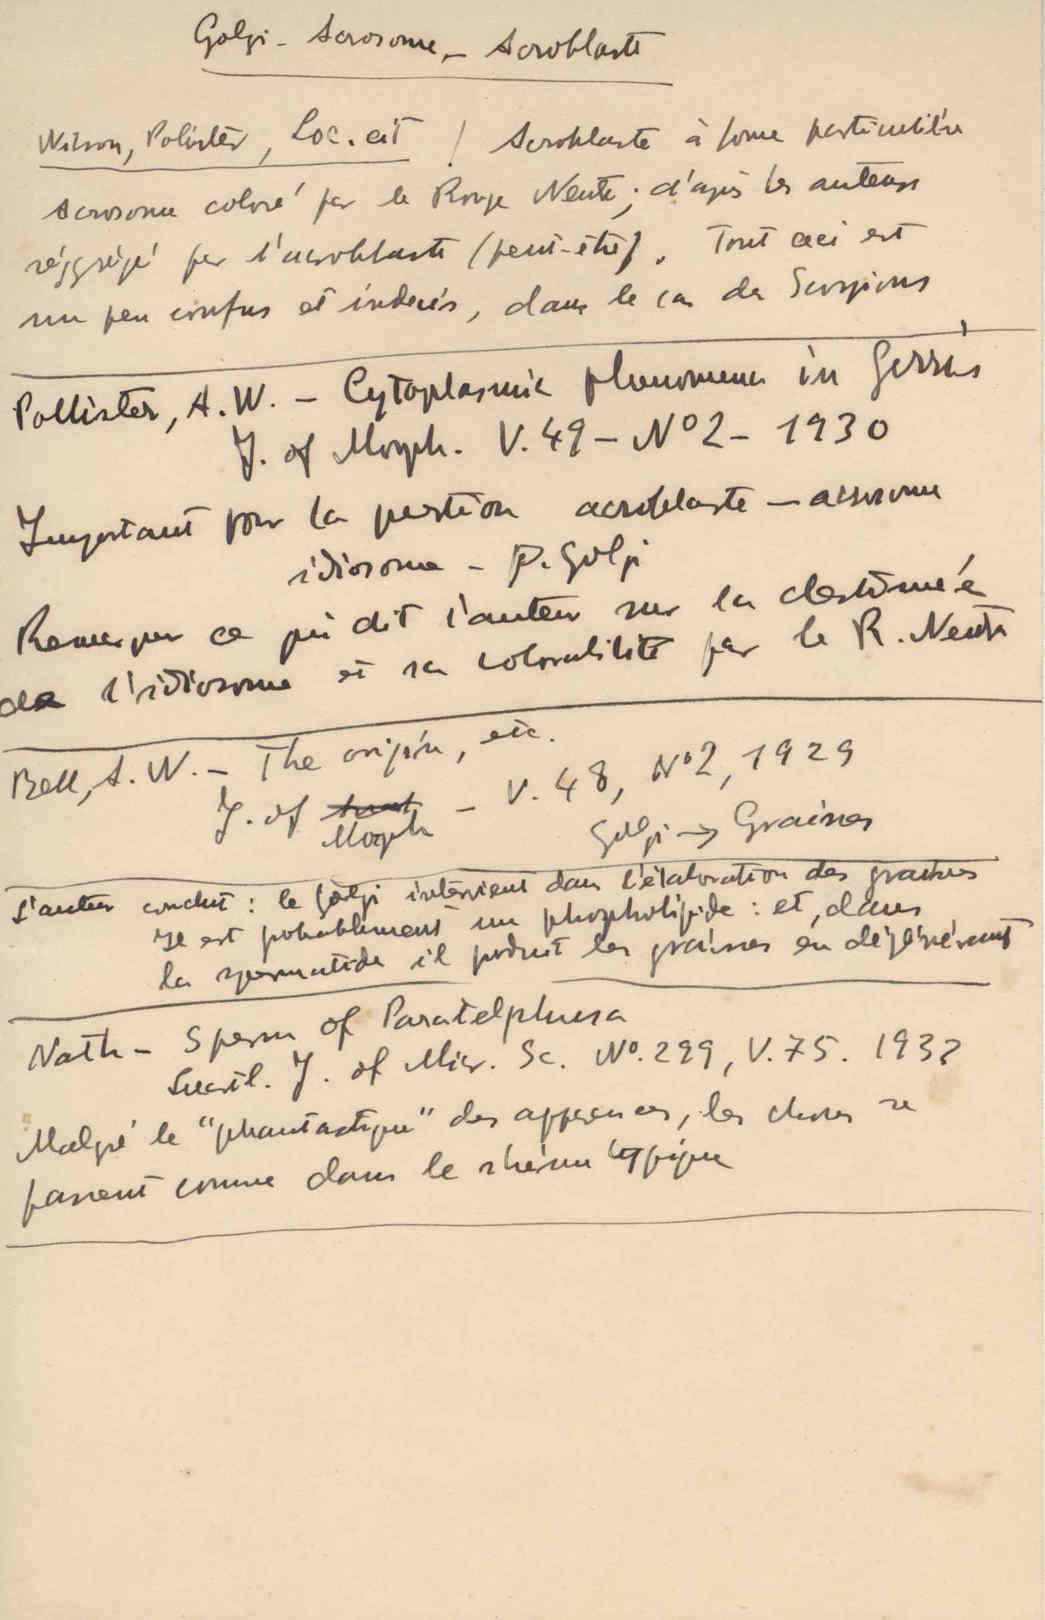 Golgi - Acrosome - Acroblaste
Wilson, Polister, Loc. cit / Acroblaste à forme particulière
Acrosome coloré par le Rouge Neutre ; d'après les auteurs
ségrégé par l'acroblaste (peut-être). Tout ceci est
un peu confus et indécis, dans le cas des Scorpions
Pollister, A.W. - Cytoplasmic phenomena in Gerris
J. of Morph. V. 49 - Nº 2 - 1930
Important pour la question acroblaste - acrosome
idiosome - p. Golgi
Remarquer ce qui dit l'auteur sur la destinée
de l'idiosome et sa colorabilité par le R. Neutre
Bell, A. W. - The origin, etc.
J. of Morph - V. 48, Nº 2, 1929
Golgi → Graisses
L'auteur conclut : le Golgi intervient dans l'élaboration des graisses
Il est probablement un phospholipide : et, dans
la spermatide il produit les graisses en dégénérant
Nath - Sperm of Paratelphusa
J. of Micr. Sc. Nº. 299, V. 75. 1932
Malgré le "phantastique" des apparences, les choses se
passent comme dans le schéma typique